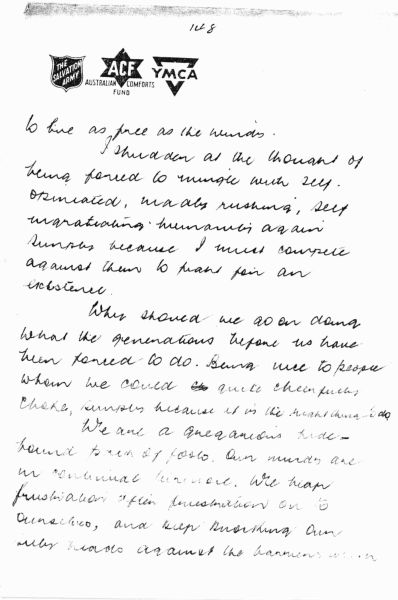 1 of 8
THE SALVATION ARMY
ACF
AUSTRALIAN COMFORTS FUND
YMCA
to live as free as the winds.
I shudder at the thought of
being forced to mingle with self.
opiniated, madly rushing, self
ingratiating humanity again
simply because I must compete
against them to for an
existence.
Why should we go on doing
what the generations before us have
been forced to do. Being nice to people
whom we could quite cheerfully
choke, simply because it is the right thing to do
We are a gregarious hide-
bound of fools. Our minds are
in continual turmoil. We heap
frustration after frustration on to
ourselves, and keep our
silly heads against the barriers